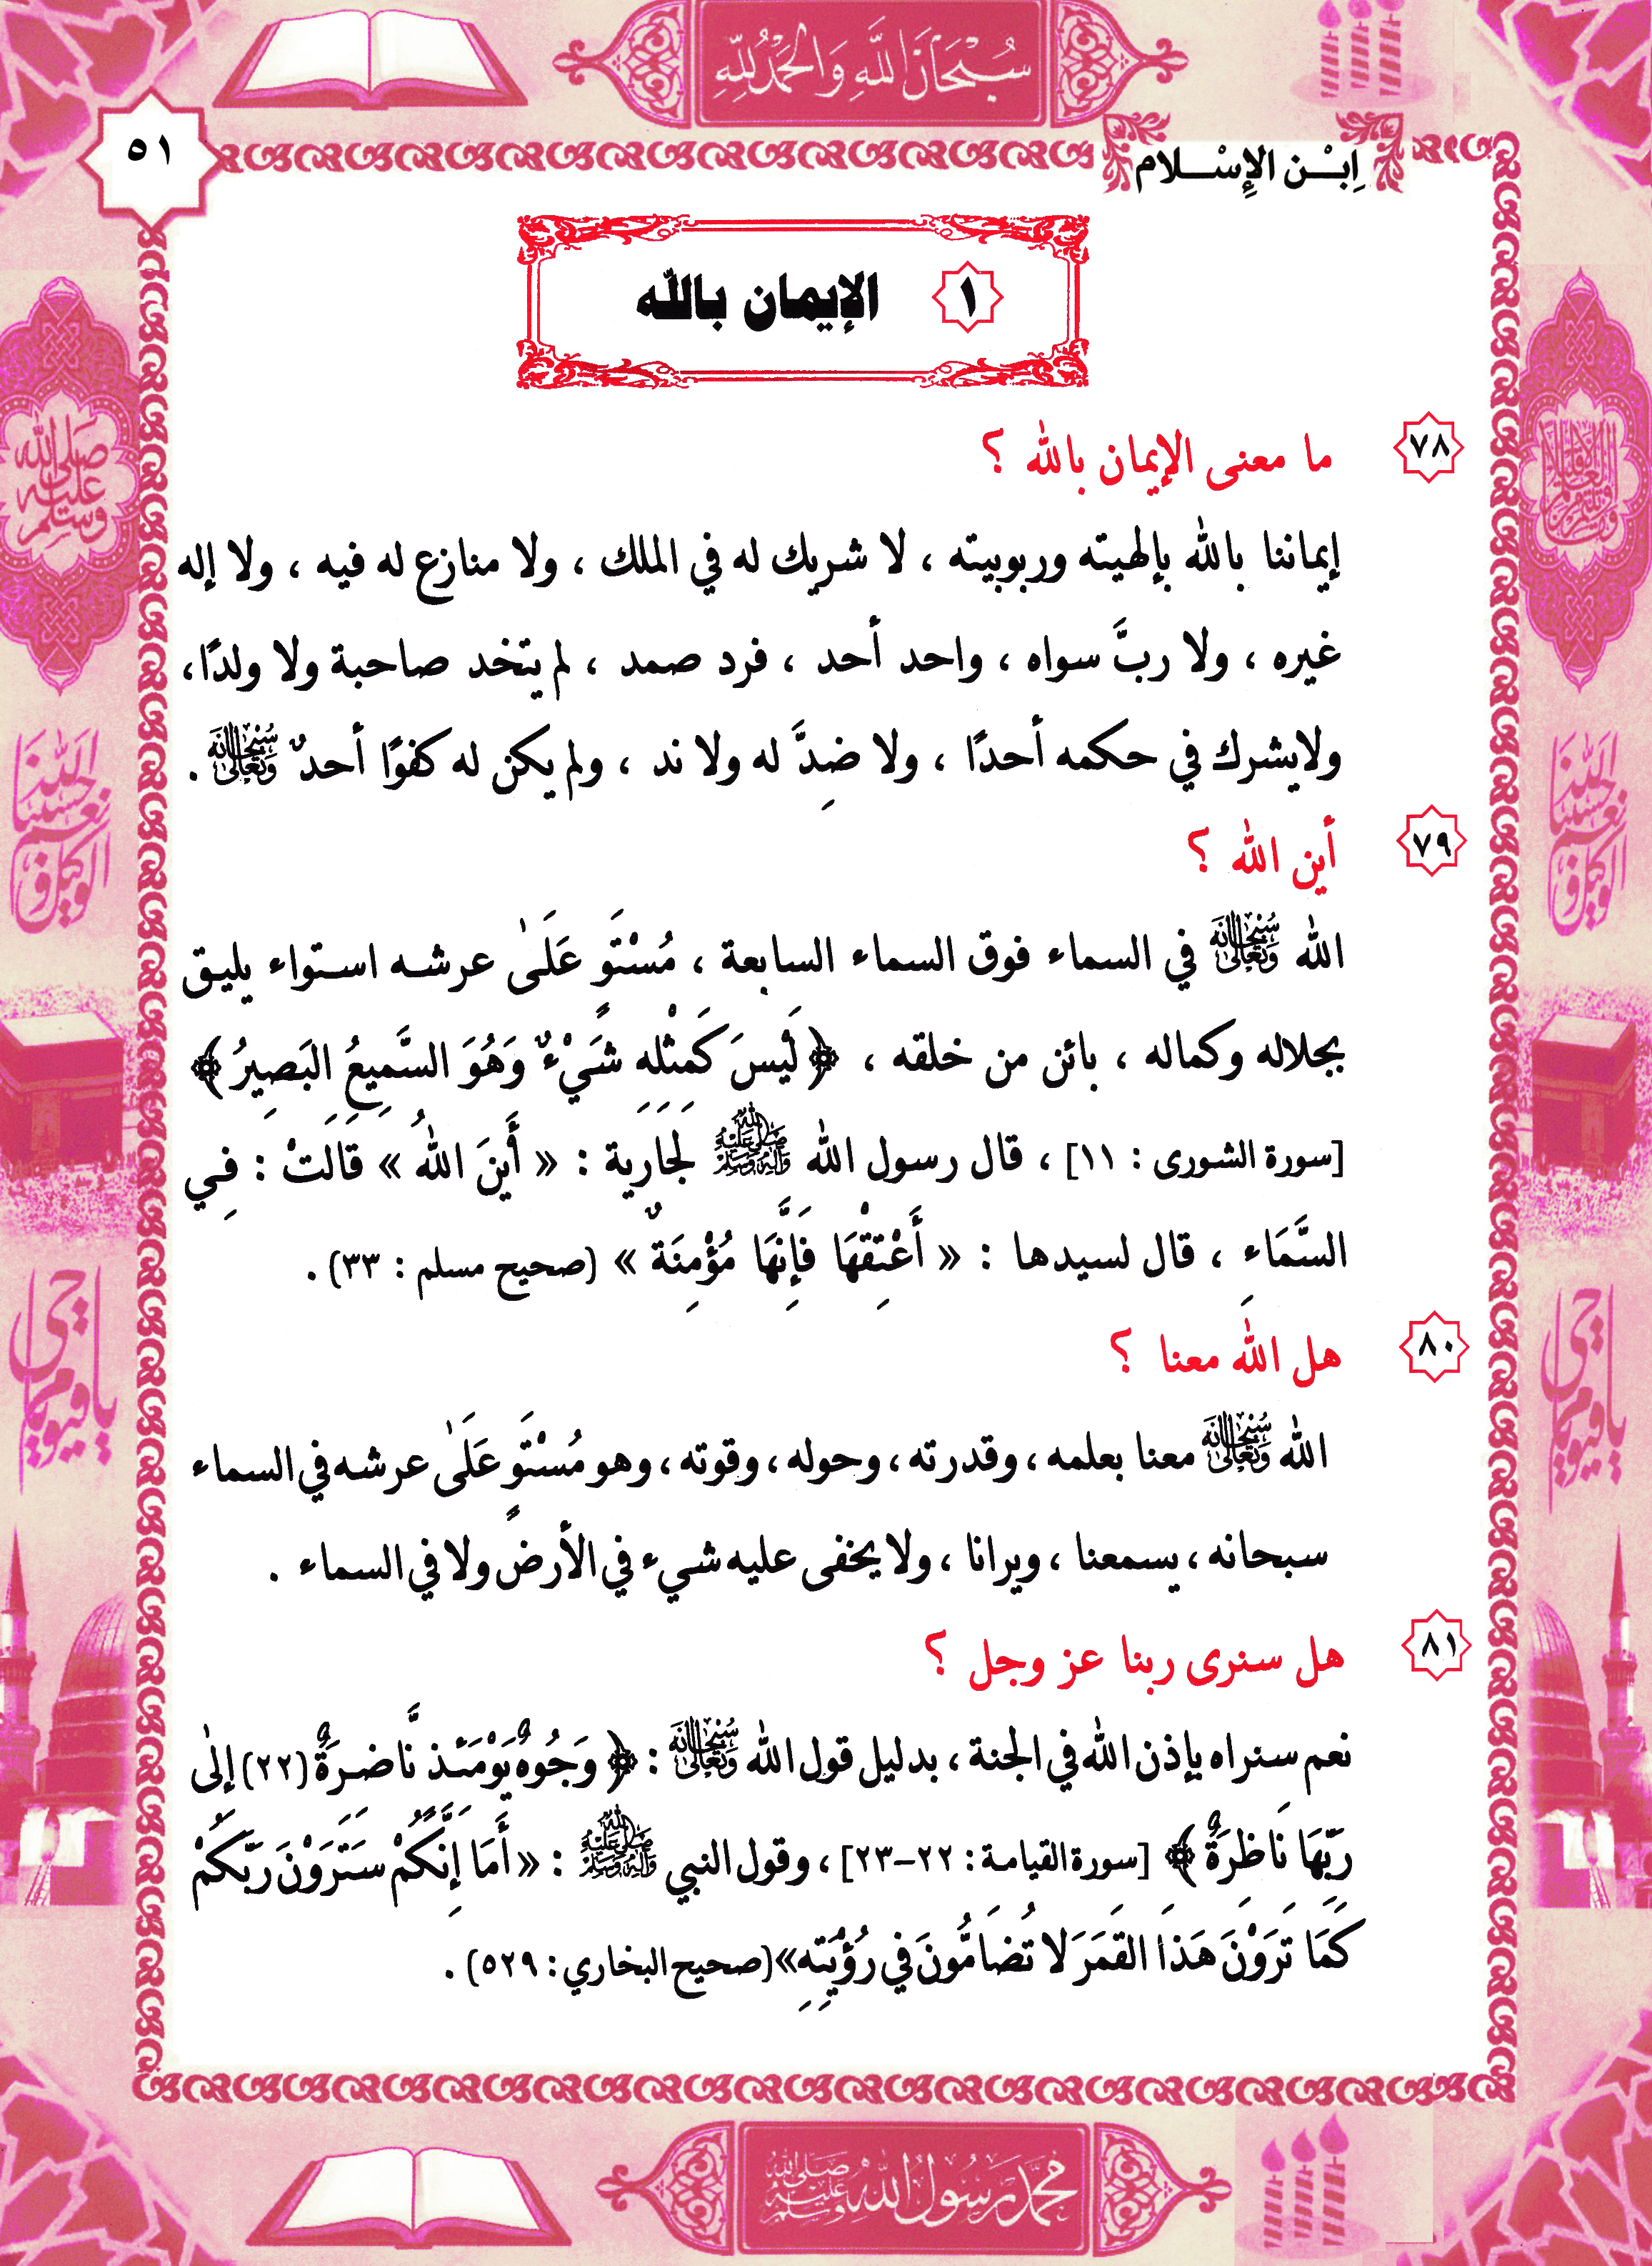 سُبْحَانَ اللَّهِ وَالْحَمْدُ لِلَّهِ
اِبْـن الإِسْـلام
٥١
١ الإيمان بالله
٧٨ ما معنى الإيمان بالله ؟
إيماننا بالله بإلهيته وربوبيته ، لا شريك له في الملك ، ولا منازع له فيه ، ولا إله
غيره ، ولا ربَّ سواه ، واحد أحد ، فرد صمد ، لم يتخد صاحبة ولا ولدًا،
ولايشرك في حكمه أحدًا ، ولا ضِدَّ له ولا ند ، ولم يكن له كفوًا أحدٌ سُبْحَانَهُ وَتَعَالَى .
٧٩ أين الله ؟
الله سُبْحَانَهُ وَتَعَالَى في السماء فوق السماء السابعة ، مُسْتَوٍ عَلَىٰ عرشه استواء يليق
بجلاله وكماله ، بائن من خلقه ، ﴿ لَيسَ كَمِثْلِهِ شَيْءٌ وَهُوَ السَّمِيعُ البَصِيرُ ﴾
[سورة الشورى : ١١] ، قال رسول الله ﷺ لجَارِية : « أَينَ اللهُ » قَالَتْ : فِـي
السَّمَاءِ ، قال لسيدها : « أَعْتِقْهَا فَإِنَّهَا مُؤْمِنَةٌ » (صحيح مسلم : ٣٣) .
٨٠ هل الله معنا ؟
الله سُبْحَانَهُ وَتَعَالَى معنا بعلمه ، وقدرته ، وحوله ، وقوته ، وهو مُسْتَوٍ عَلَىٰ عرشه في السماء
سبحانه ، يسمعنا ، ويرانا ، ولا يخفى عليه شيء في الأرض ولا في السماء .
٨١ هل سنرى ربنا عز وجل ؟
نعم سنراه بإذن الله في الجنة ، بدليل قول الله سُبْحَانَهُ وَتَعَالَى : ﴿ وَجُوهٌ يَوْمَئِذٍ نَّاضِرَةٌ (٢٢) إلَىٰ
رَبِّهَا نَاظِرَةٌ ﴾ [سورة القيامة : ٢٢-٢٣] ، وقول النبي ﷺ : « أَمَا إِنَّكُمْ سَتَرَوْنَ رَبَّكُمْ
كَمَا تَرَوْنَ هَذَا القَمَرَ لا تُضَامُّونَ في رُؤْيَتِهِ» (صحيح البخاري : ٥٢٩) .
صَلَّى اللَّهُ عَلَيْهِ وَسَلَّمَ
حَسْبُنَا اللَّهُ وَنِعْمَ الْوَكِيلُ
حَسْبُنَا اللَّهُ وَنِعْمَ الْوَكِيلُ
يا حي يا قيوم
يا حي يا قيوم
مُحَمَّدٌ رَسُولُ اللَّهِ صَلَّى اللَّهُ عَلَيْهِ وَسَلَّمَ